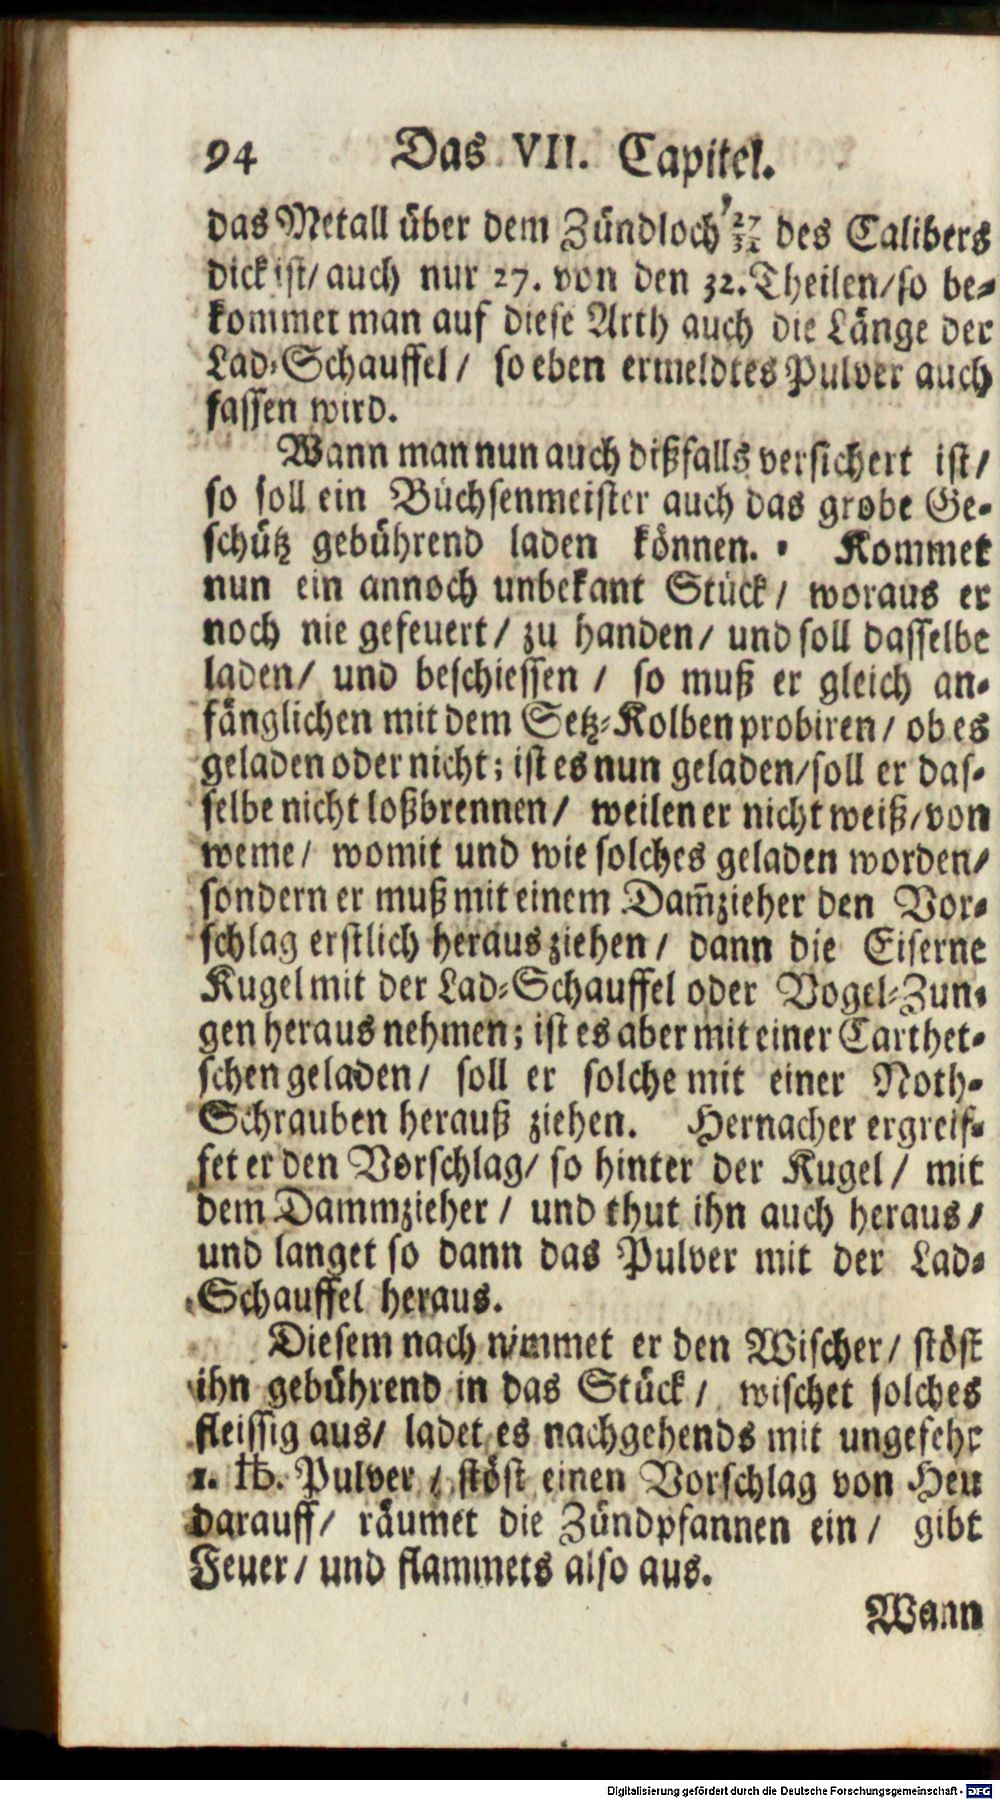 94 Das VII. Capitel.
das Metall über dem Zündloch 27/32 des Calibers
dick ist/ auch nur 27. von den 32. Theilen/ so be-
kommet man auf diese Arth auch die Länge der
Lad-Schauffel/ so eben ermeldtes Pulver auch
fassen wird.
Wann man nun auch dißfalls versichert ist/
so soll ein Büchsenmeister auch das grobe Ge-
schütz gebührend laden können. Kommet
nun ein annoch unbekant Stück/ woraus er
noch nie gefeuert/ zu handen/ und soll dasselbe
laden/ und beschiessen/ so muß er gleich an-
fänglichen mit dem Setz-Kolben probiren/ ob es
geladen oder nicht; ist es nun geladen/ soll er das-
selbe nicht loßbrennen/ weilen er nicht weiß/ von
weme/ womit und wie solches geladen worden/
sondern er muß mit einem Dam̄zieher den Vor-
schlag erstlich heraus ziehen/ dann die Eiserne
Kugel mit der Lad-Schauffel oder Vogel-Zun-
gen heraus nehmen; ist es aber mit einer Carthet-
schen geladen/ soll er solche mit einer Noth-
Schrauben herauß ziehen. Hernacher ergreif-
fet er den Vorschlag/ so hinter der Kugel/ mit
dem Dammzieher/ und thut ihn auch heraus/
und langet so dann das Pulver mit der Lad-
Schauffel heraus.
Diesem nach nimmet er den Wischer/ stöst
ihn gebührend in das Stück/ wischet solches
fleissig aus/ ladet es nachgehends mit ungefehr
1. ℔. Pulver/ stöst einen Vorschlag von Heu
darauff/ räumet die Zündpfannen ein/ gibt
Feuer/ und flammets also aus.
Wann
Digitalisierung gefördert durch die Deutsche Forschungsgemeinschaft - DFG